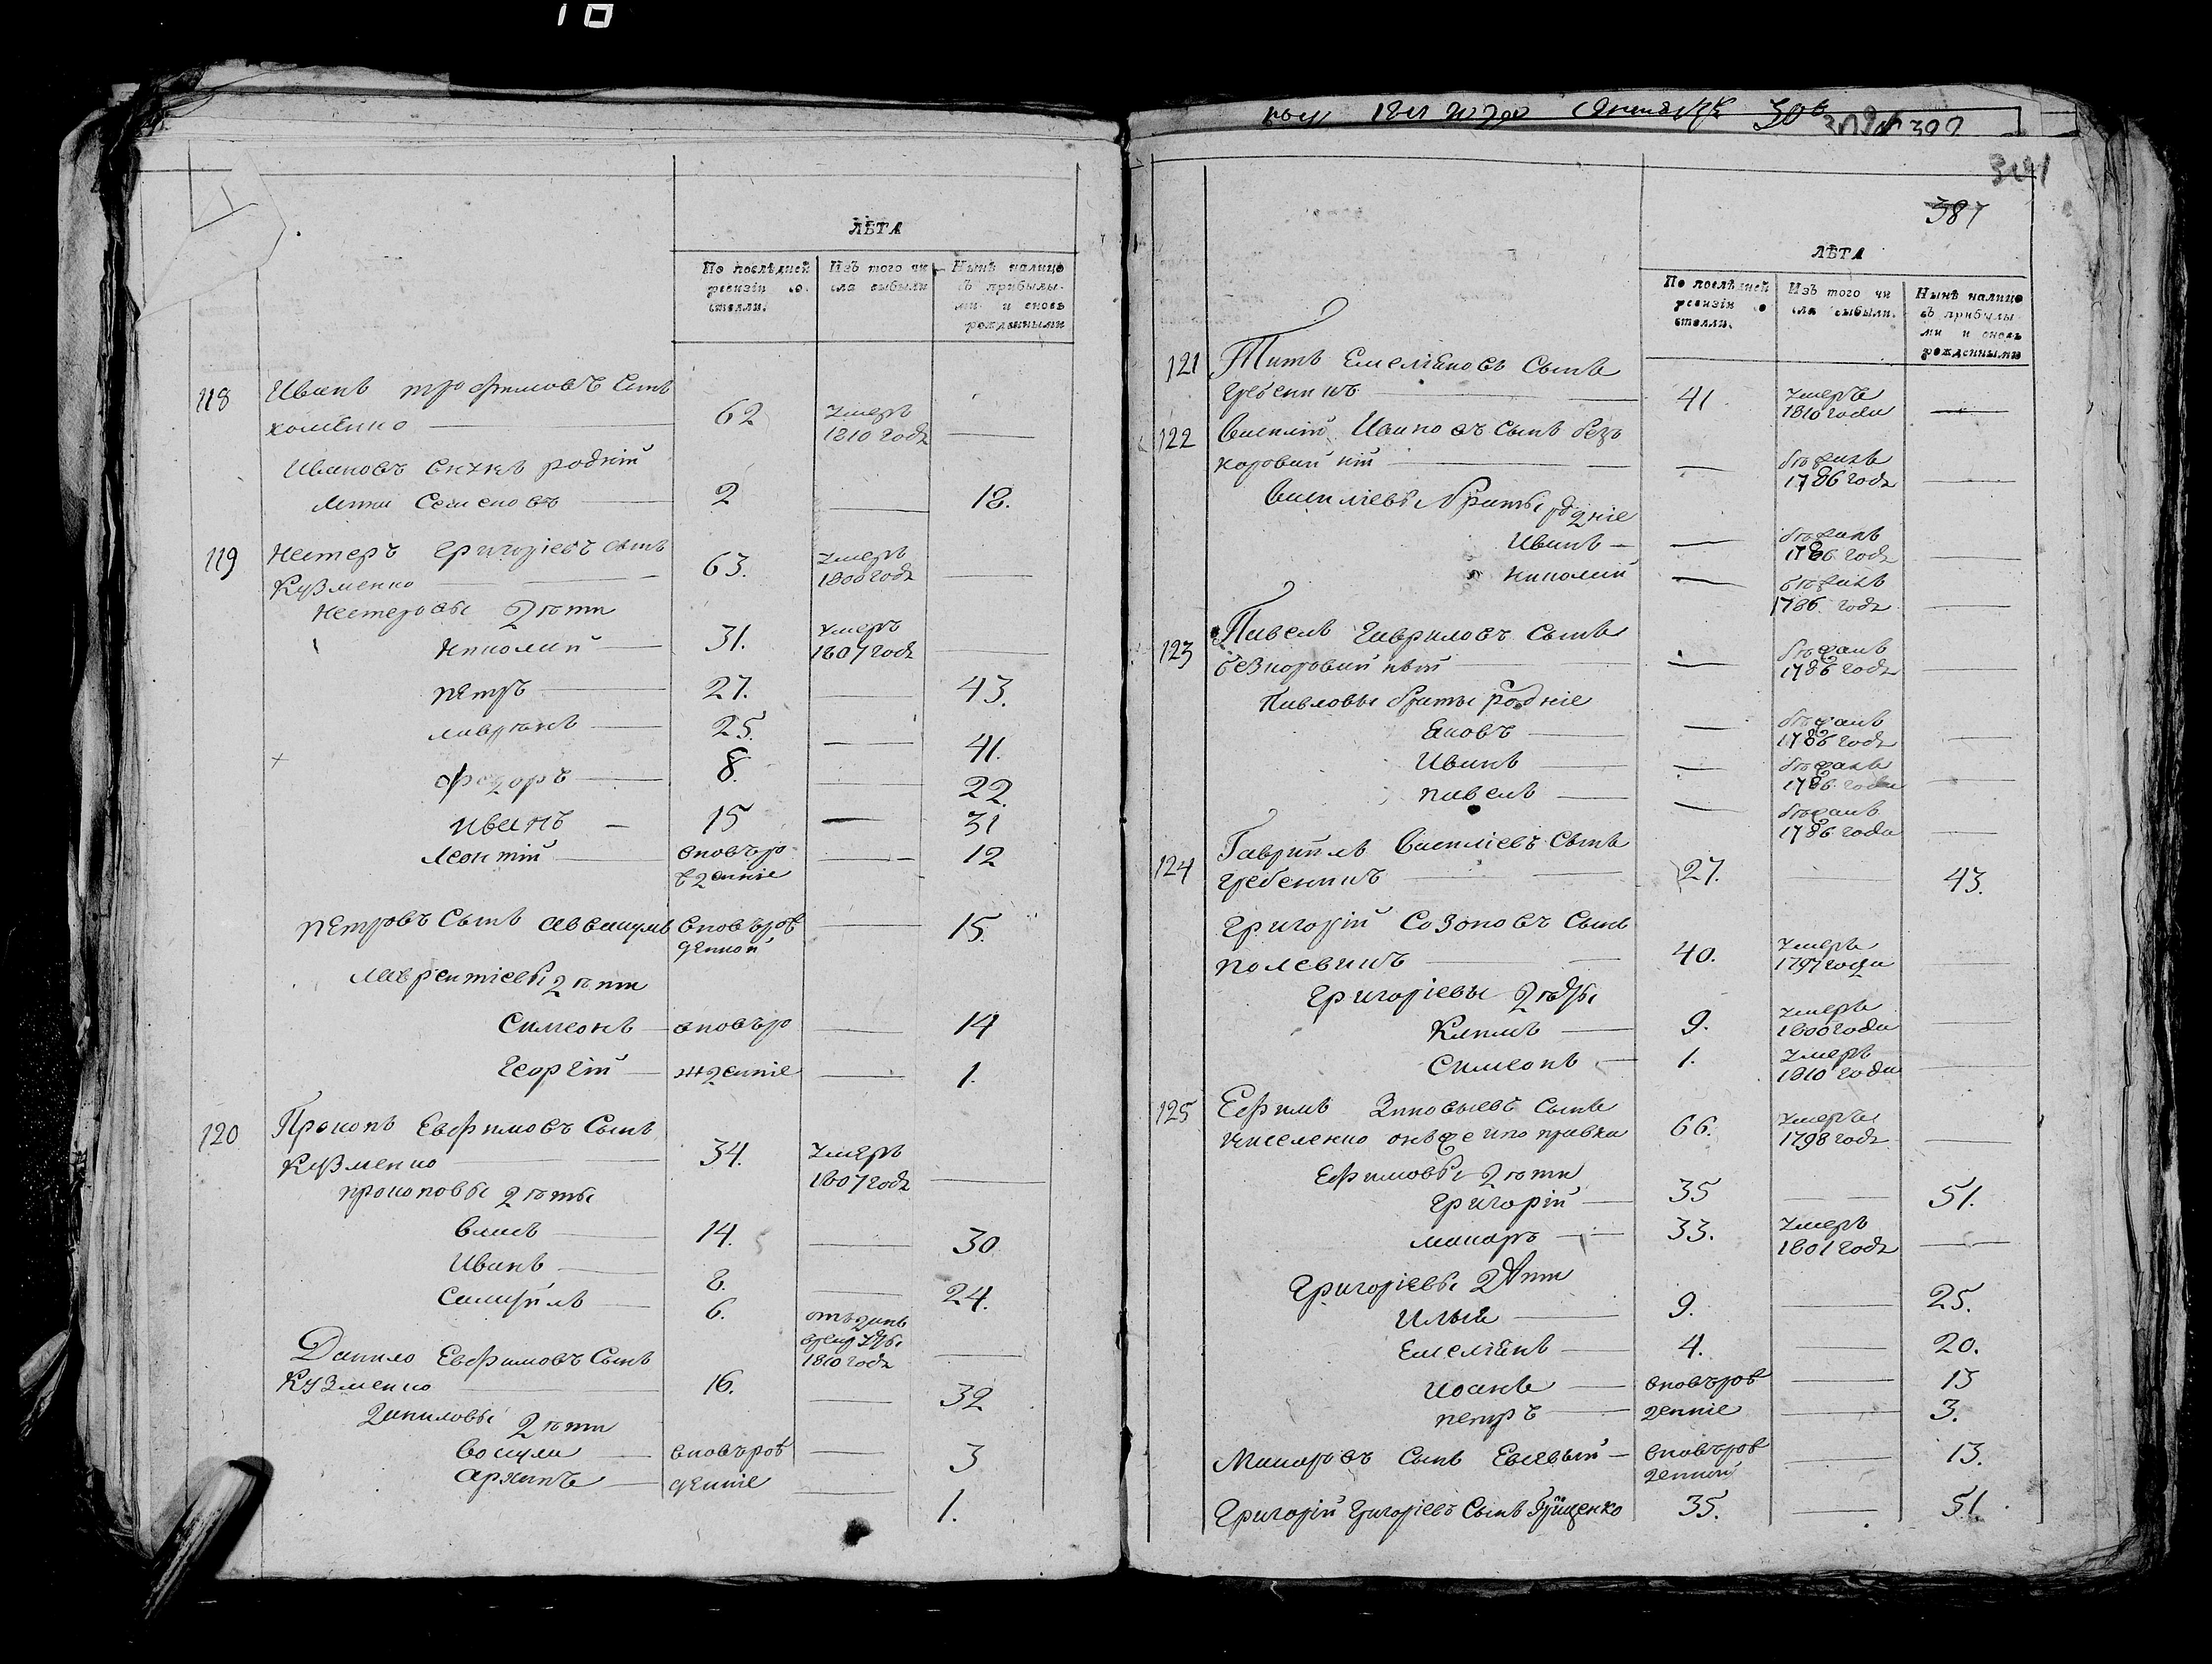 ЛѢТА
По послѣдней ревизіи состояли.
Изъ того числа выбыли
Нынѣ налицо съ прибылыми и вновь рожденными
118 Иванъ трофимовъ Сынъ
62 умеръ 1810 года —
Ивановъ внукъ родній
Семеновъ — 2 — 18.
119 Нестеръ григоріевъ сынъ
Кузменко — 63. умеръ 1800 года —
Нестеровы дѣти
Николай — 31. умеръ 1807 года —
петръ — 27. — 43.
лаврѣнъ — 25. — 41.
федоръ — 8. — 22.
иванъ — 15 — 31
Леонтій — вновърожденніе — 12
петровъ Сынъ аввакумъ вновърожденной — 15.
лаврентіевы дѣти
Симеонъ — вновъро — 14
Георгій — жденніе — 1.
120 Прокопъ Евфимовъ Сынъ
Кузменко — 34. умеръ 1807 годъ —
прокоповы дѣты
власъ — 14. — 30
Иванъ — 8. — 24.
Самуйлъ — 6. отъданъ врекруты 1810 годъ —
Данило Евфимовъ Сынъ
Кузменко — 16. — 32
даниловы дѣти
вновърож — 3
архипъ — денніе — 1.
1811 года Сентября 30
387
ЛѢТА
По послѣдней ревизіи состояли.
Изъ того числа выбыли.
Нынѣ налицо съ прибулыми и вновь рожденными
121 Титъ Емеліановъ Сынъ
гребеникъ — 41 умеръ 1810 года —
122 Василій Ивановъ сынъ без
коровайній — — бѣжалъ 1786 годъ —
василіевы браты родніе
Иванъ — — бѣжалъ 1786 годъ —
николай — бѣжалъ 1786 годъ —
123 Павелъ гавриловъ сынъ
безкоровайній — — бѣжалъ 1786 годъ —
Павловы браты родніе
Яковъ — — бѣжалъ 1786 годъ —
Иванъ — — бѣжалъ 1786 года —
павелъ — — бѣжалъ 1786 года —
124 Гаврійлъ Василіевъ Сынъ
гребеникъ — 27. — 43.
григорій Созоновъ Сынъ
полевикъ — 40. умеръ 1797 года —
григоріевы дѣты
Климъ — 9. умеръ 1800 года —
Симеонъ — 1. умеръ 1810 года —
125 Ефимъ Зиновыевъ сынъ
киселенко онъже ипоправка 66. умеръ 1798 годъ —
Ефимовы дѣти
григорій — 35 — 51.
макаръ — 33. умеръ 1801 годъ —
григоріевы дѣти
Илья — 9. — 25.
Емеліанъ — 4. — 20.
иоанъ — вновърож — 13
петръ — денніе — 3.
Макаровъ Сынъ Евсевый — вновърожденной — 13.
григорій григоріевъ Сынъ Грищенко 35. — 51.